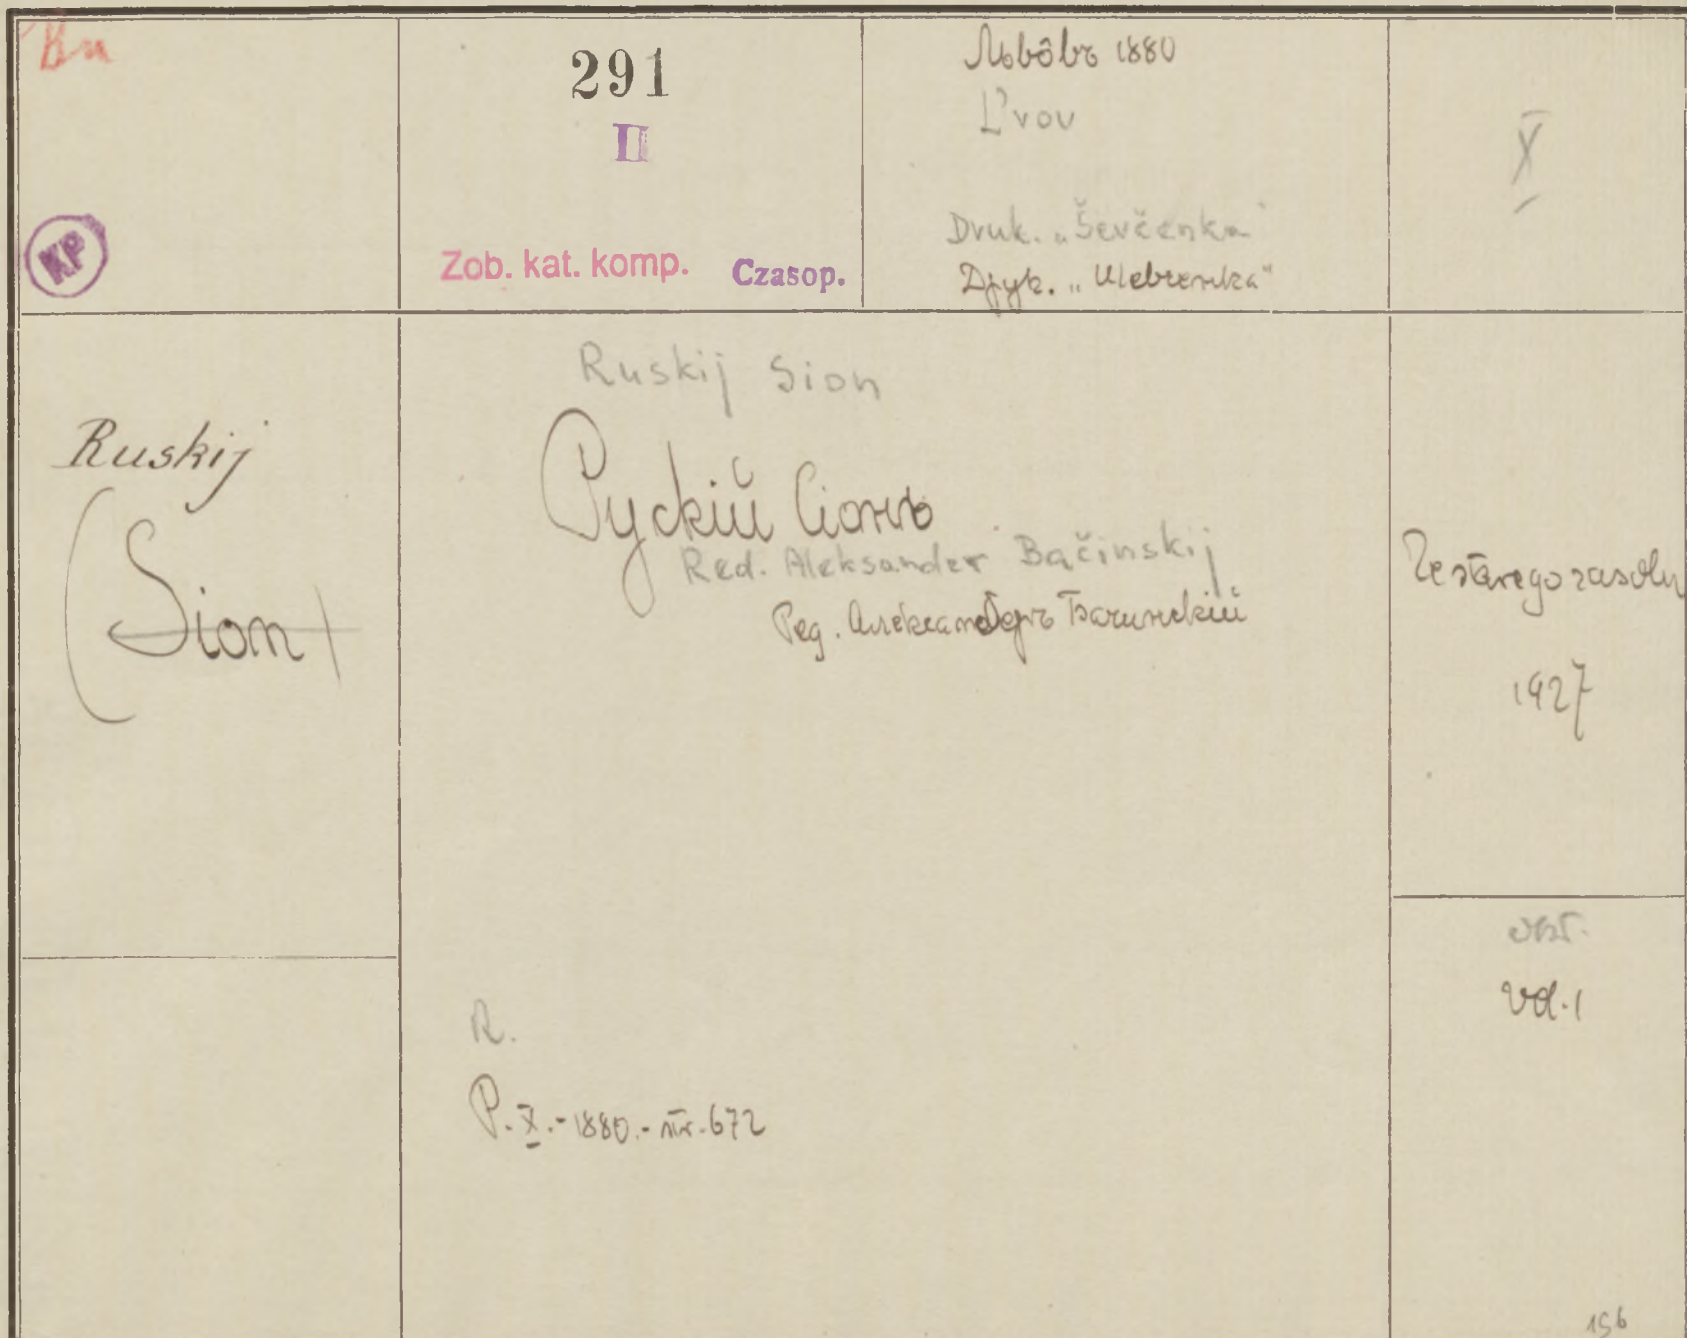 Bn
291
II
KP
Zob. kat. komp. Czasop.
Львôвъ 1880
L'vov
Druk. „Ševčenka"
Друк. „Шевченка"
X
Ruskij
(Sion)
Ruskij Sion
Рускій Сіонъ
Red. Aleksander Bačinskij
Ред. Александеръ Бачинскій
Ze starego zasobu
1927
R.
P. X. - 1880. - nr. 672
vol. 1
156